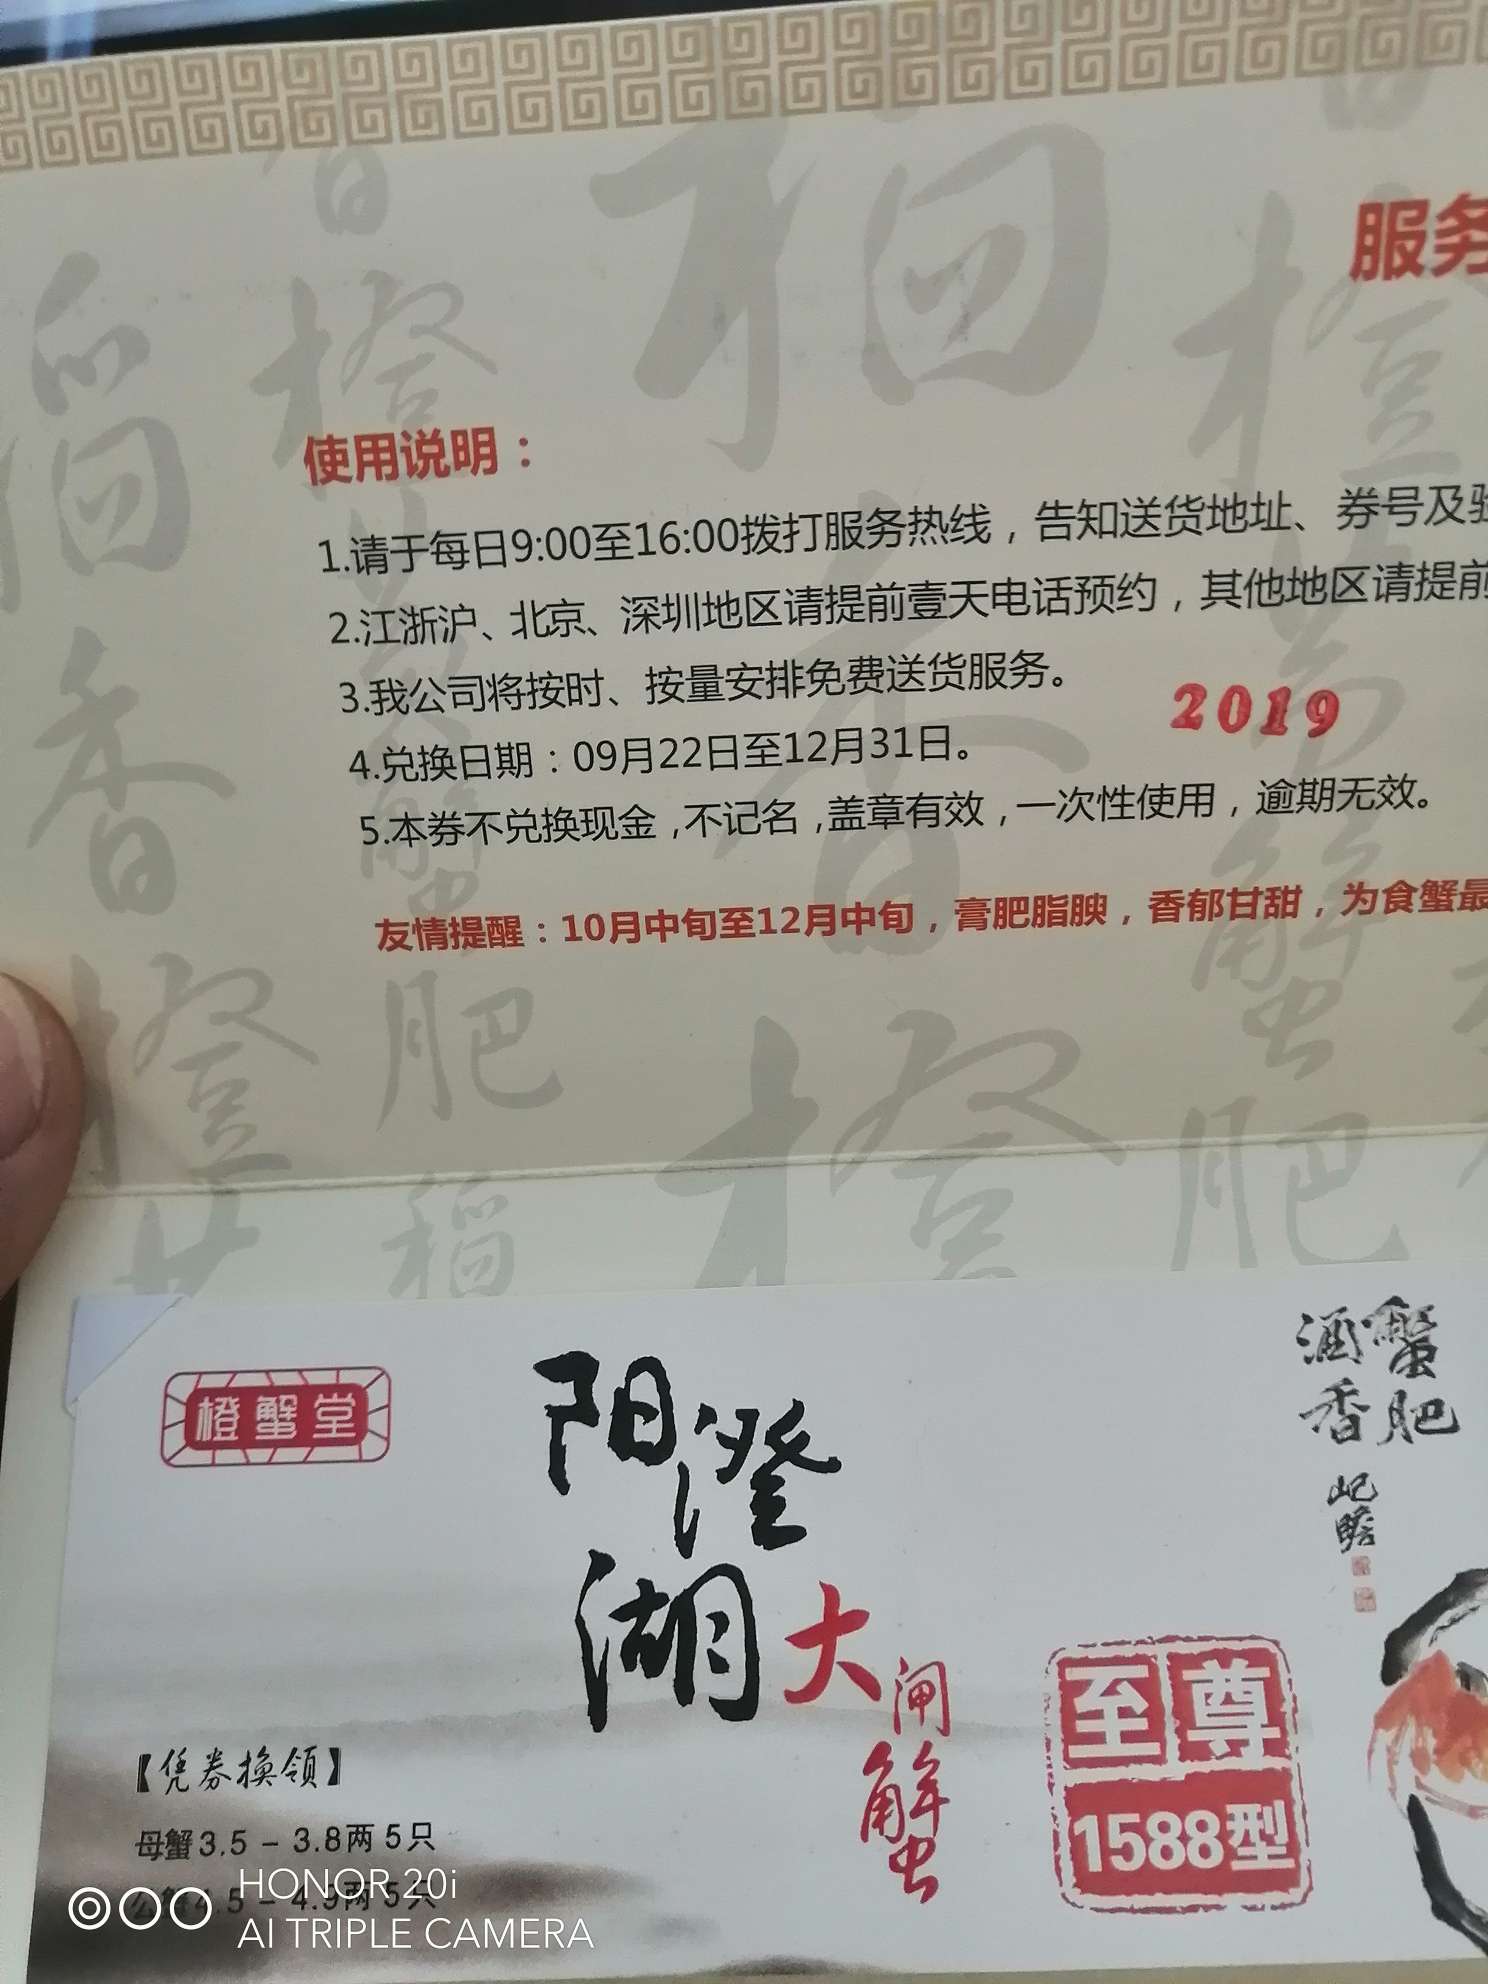 服务
使用说明：
1.请于每日9:00至16:00拨打服务热线，告知送货地址、券号及验
2.江浙沪、北京、深圳地区请提前壹天电话预约，其他地区请提前
3.我公司将按时、按量安排免费送货服务。
2019
4.兑换日期：09月22日至12月31日。
5.本券不兑换现金,不记名,盖章有效,一次性使用,逾期无效。
友情提醒：10月中旬至12月中旬，膏肥脂腴，香郁甘甜，为食蟹最
橙蟹堂
阳澄湖大闸蟹
蟹肥
酒香
至尊
1588型
【凭券换领】
母蟹3.5－3.8两 5只
公蟹4.5－4.9两 5只
HONOR 20i
AI TRIPLE CAMERA